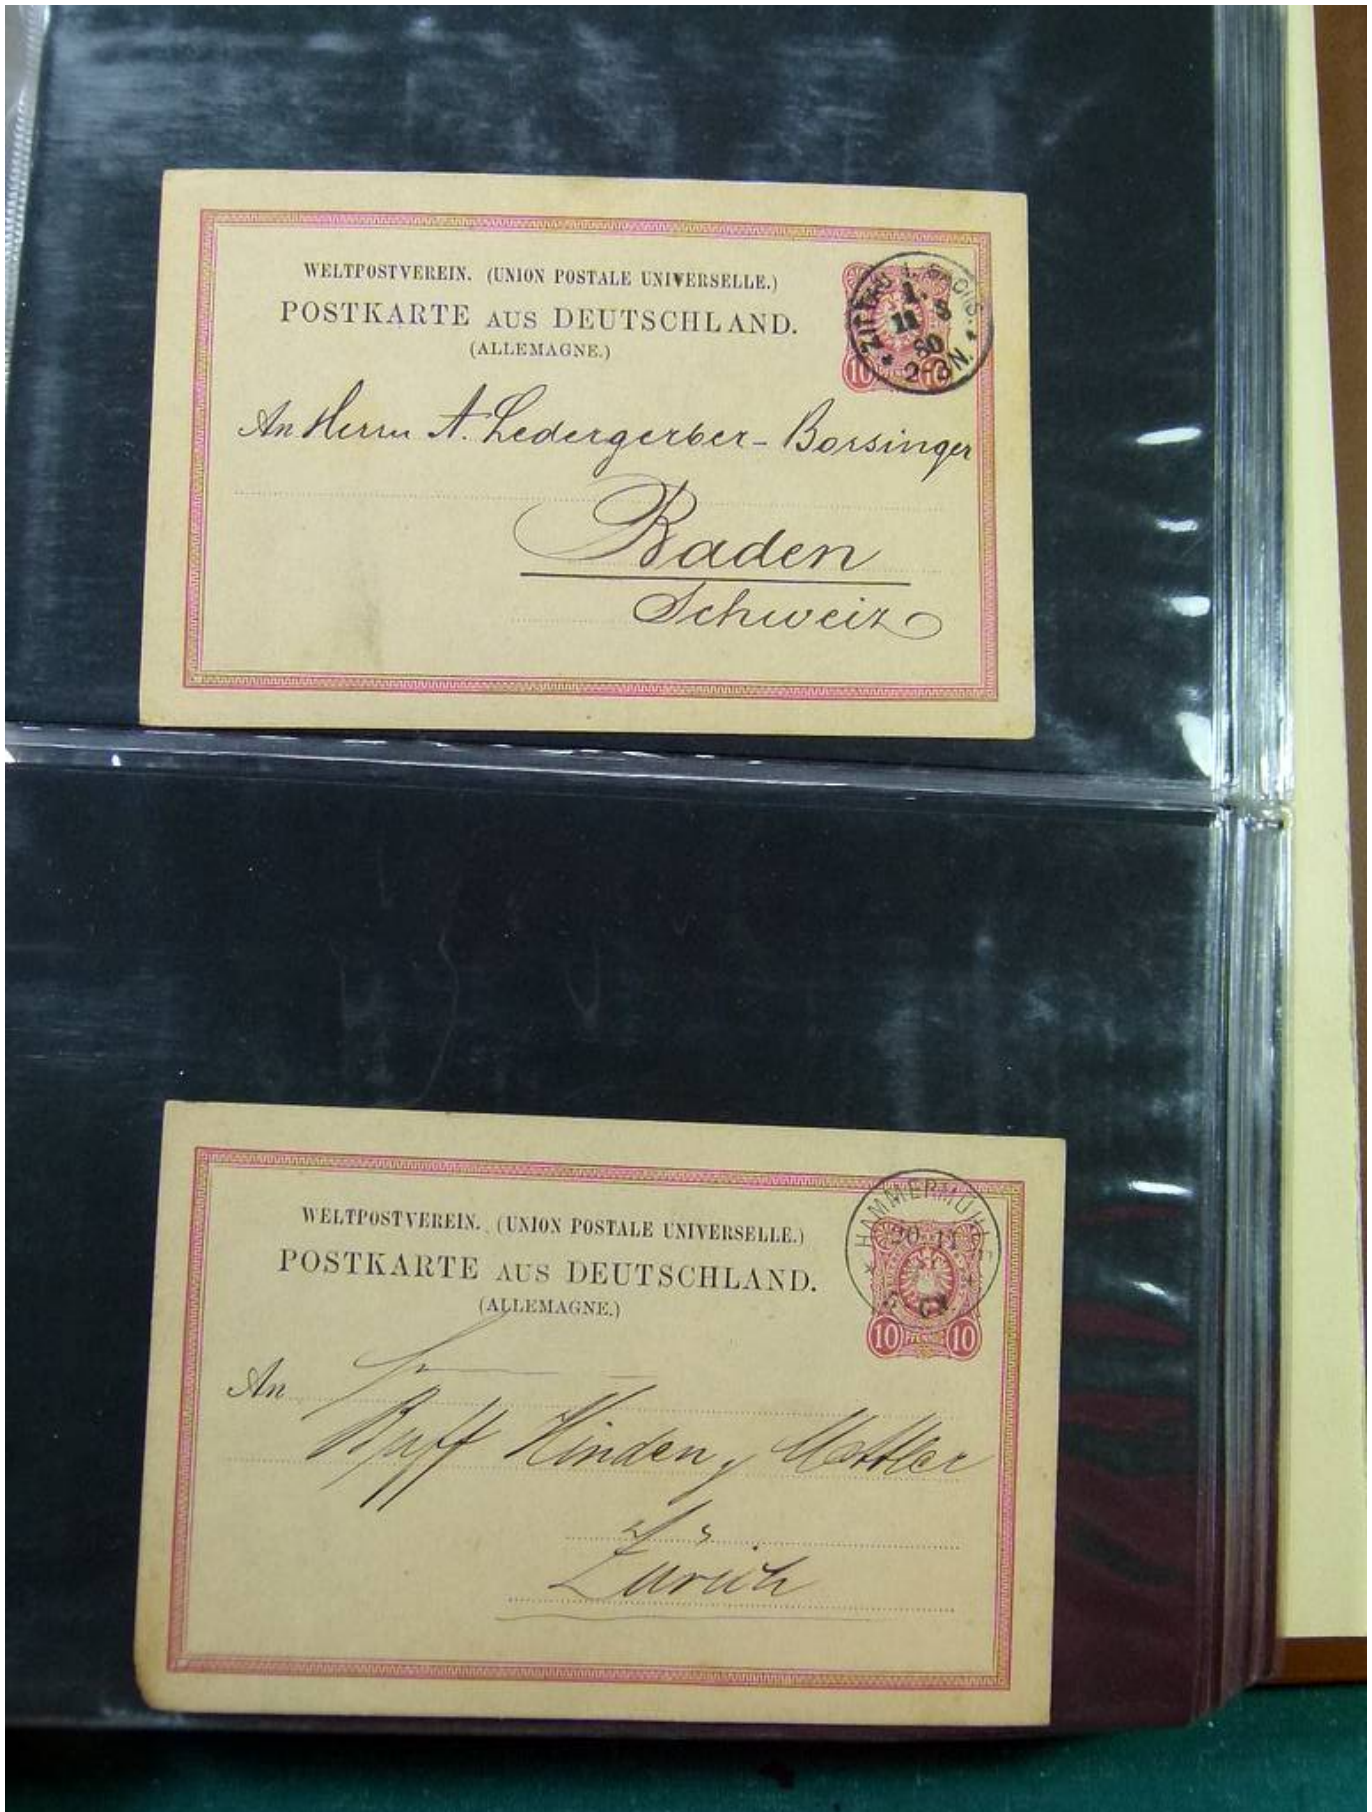 WELTPOSTVEREIN. (UNION POSTALE UNIVERSELLE.)
POSTKARTE AUS DEUTSCHLAND.
(ALLEMAGNE.)
ZITTAU i. SACHS.
11 8
80
2-3 N.
10 PFENNIG 10
An Herrn A. Ledergerber-Borsinger
Baden
Schweiz
WELTPOSTVEREIN. (UNION POSTALE UNIVERSELLE.)
POSTKARTE AUS DEUTSCHLAND.
(ALLEMAGNE.)
HAMMERMÜHLE
20 11
10 PFENNIG 10
An
Hinden Mettler
Zürich